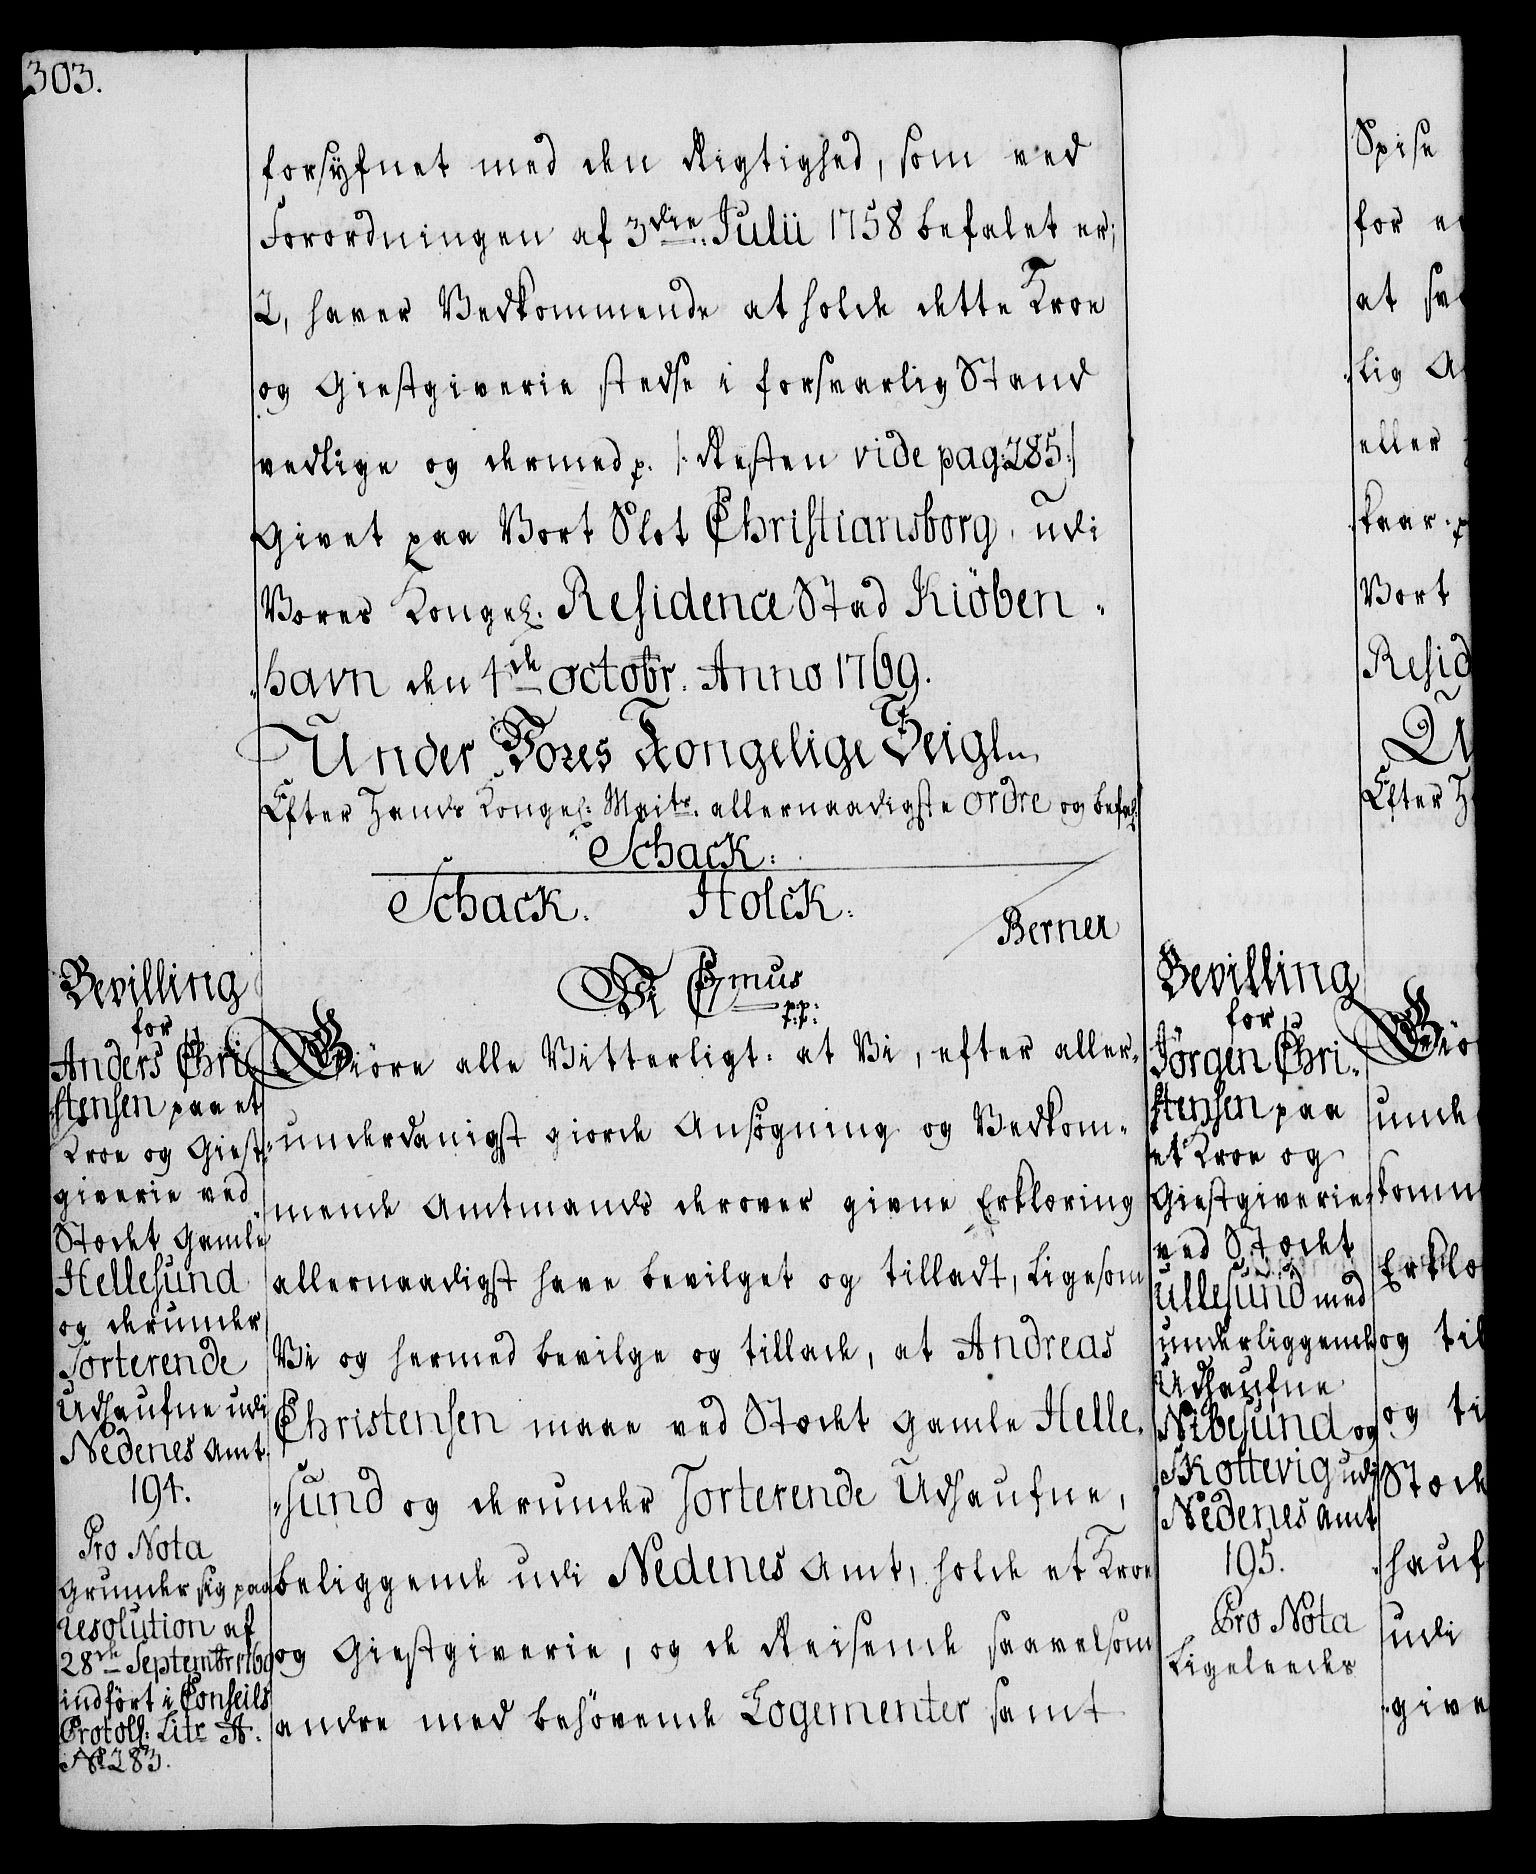 303.
forsÿfnet med den Rigtighed, som ved
Forordningen af 3die: Julii 1758 befalet er;
2, haver Vedkommende at holde dette Kroe
og Giestgiverie stedse i forsvarlig Stand
vedlige og dermed p. /: Resten vide pag: 285:/
Givet paa Vort Slot Christiansborg, udi
Vores Kongel. Residence Stad Kiöben-
-havn den 4de octobr. Anno 1769.
Under Vores Kongelige Zeigl
Efter Hands Kongel: Maits. allernaadigste ordre og befal:
Schack:
Schack. Holck:
Berner
Bevilling
for
Anders Chri-
-stensen paa et
Kroe og Giest-
giverie ved
Stædet Gamle
Hellesund
og derunder
Sorterende
Udhaufne udi
Nedenes Amt.
194.
Pro Nota
Grunder sig paa
resolution af
28de Septembr 1769
indfört i Conseils
Protoll: Litr A.
No 283.
Vi C7mus
p:p:
t:t:
Giöre alle Vitterligt: at Vi, efter aller-
-underdanigst giorde Ansögning og Vedkom-
mende Amtmands derover givne Erklæring
allernaadigst have bevilget og tilladt, ligesom
Vi og hermed bevilge og tillade, at Andreas
Christensen maae ved Stædet Gamle Helle-
-sund og derunder Sorterende Udhaufne,
beliggende udi Nedenes Amt, holde et Kroe
og Giestgiverie, og de Reisende saavelsom
andre med behövende Logementer samt
Bevilling
for
Jörgen Chri-
stensen paa
et Kroe og
Giestgiverie
ved Stædet
Ullesund med
underliggende
Udhaufne
Nibesund og
Skottevig udi
Nedenes Amt
195.
Pro Nota
Ligeleedes
Spise
for
at
lig
eller
skaar. p
Vort
Resid
Efter
Giö
unde
komm
Erklæ
og til
og ti
Stæde
hauf
udi
give